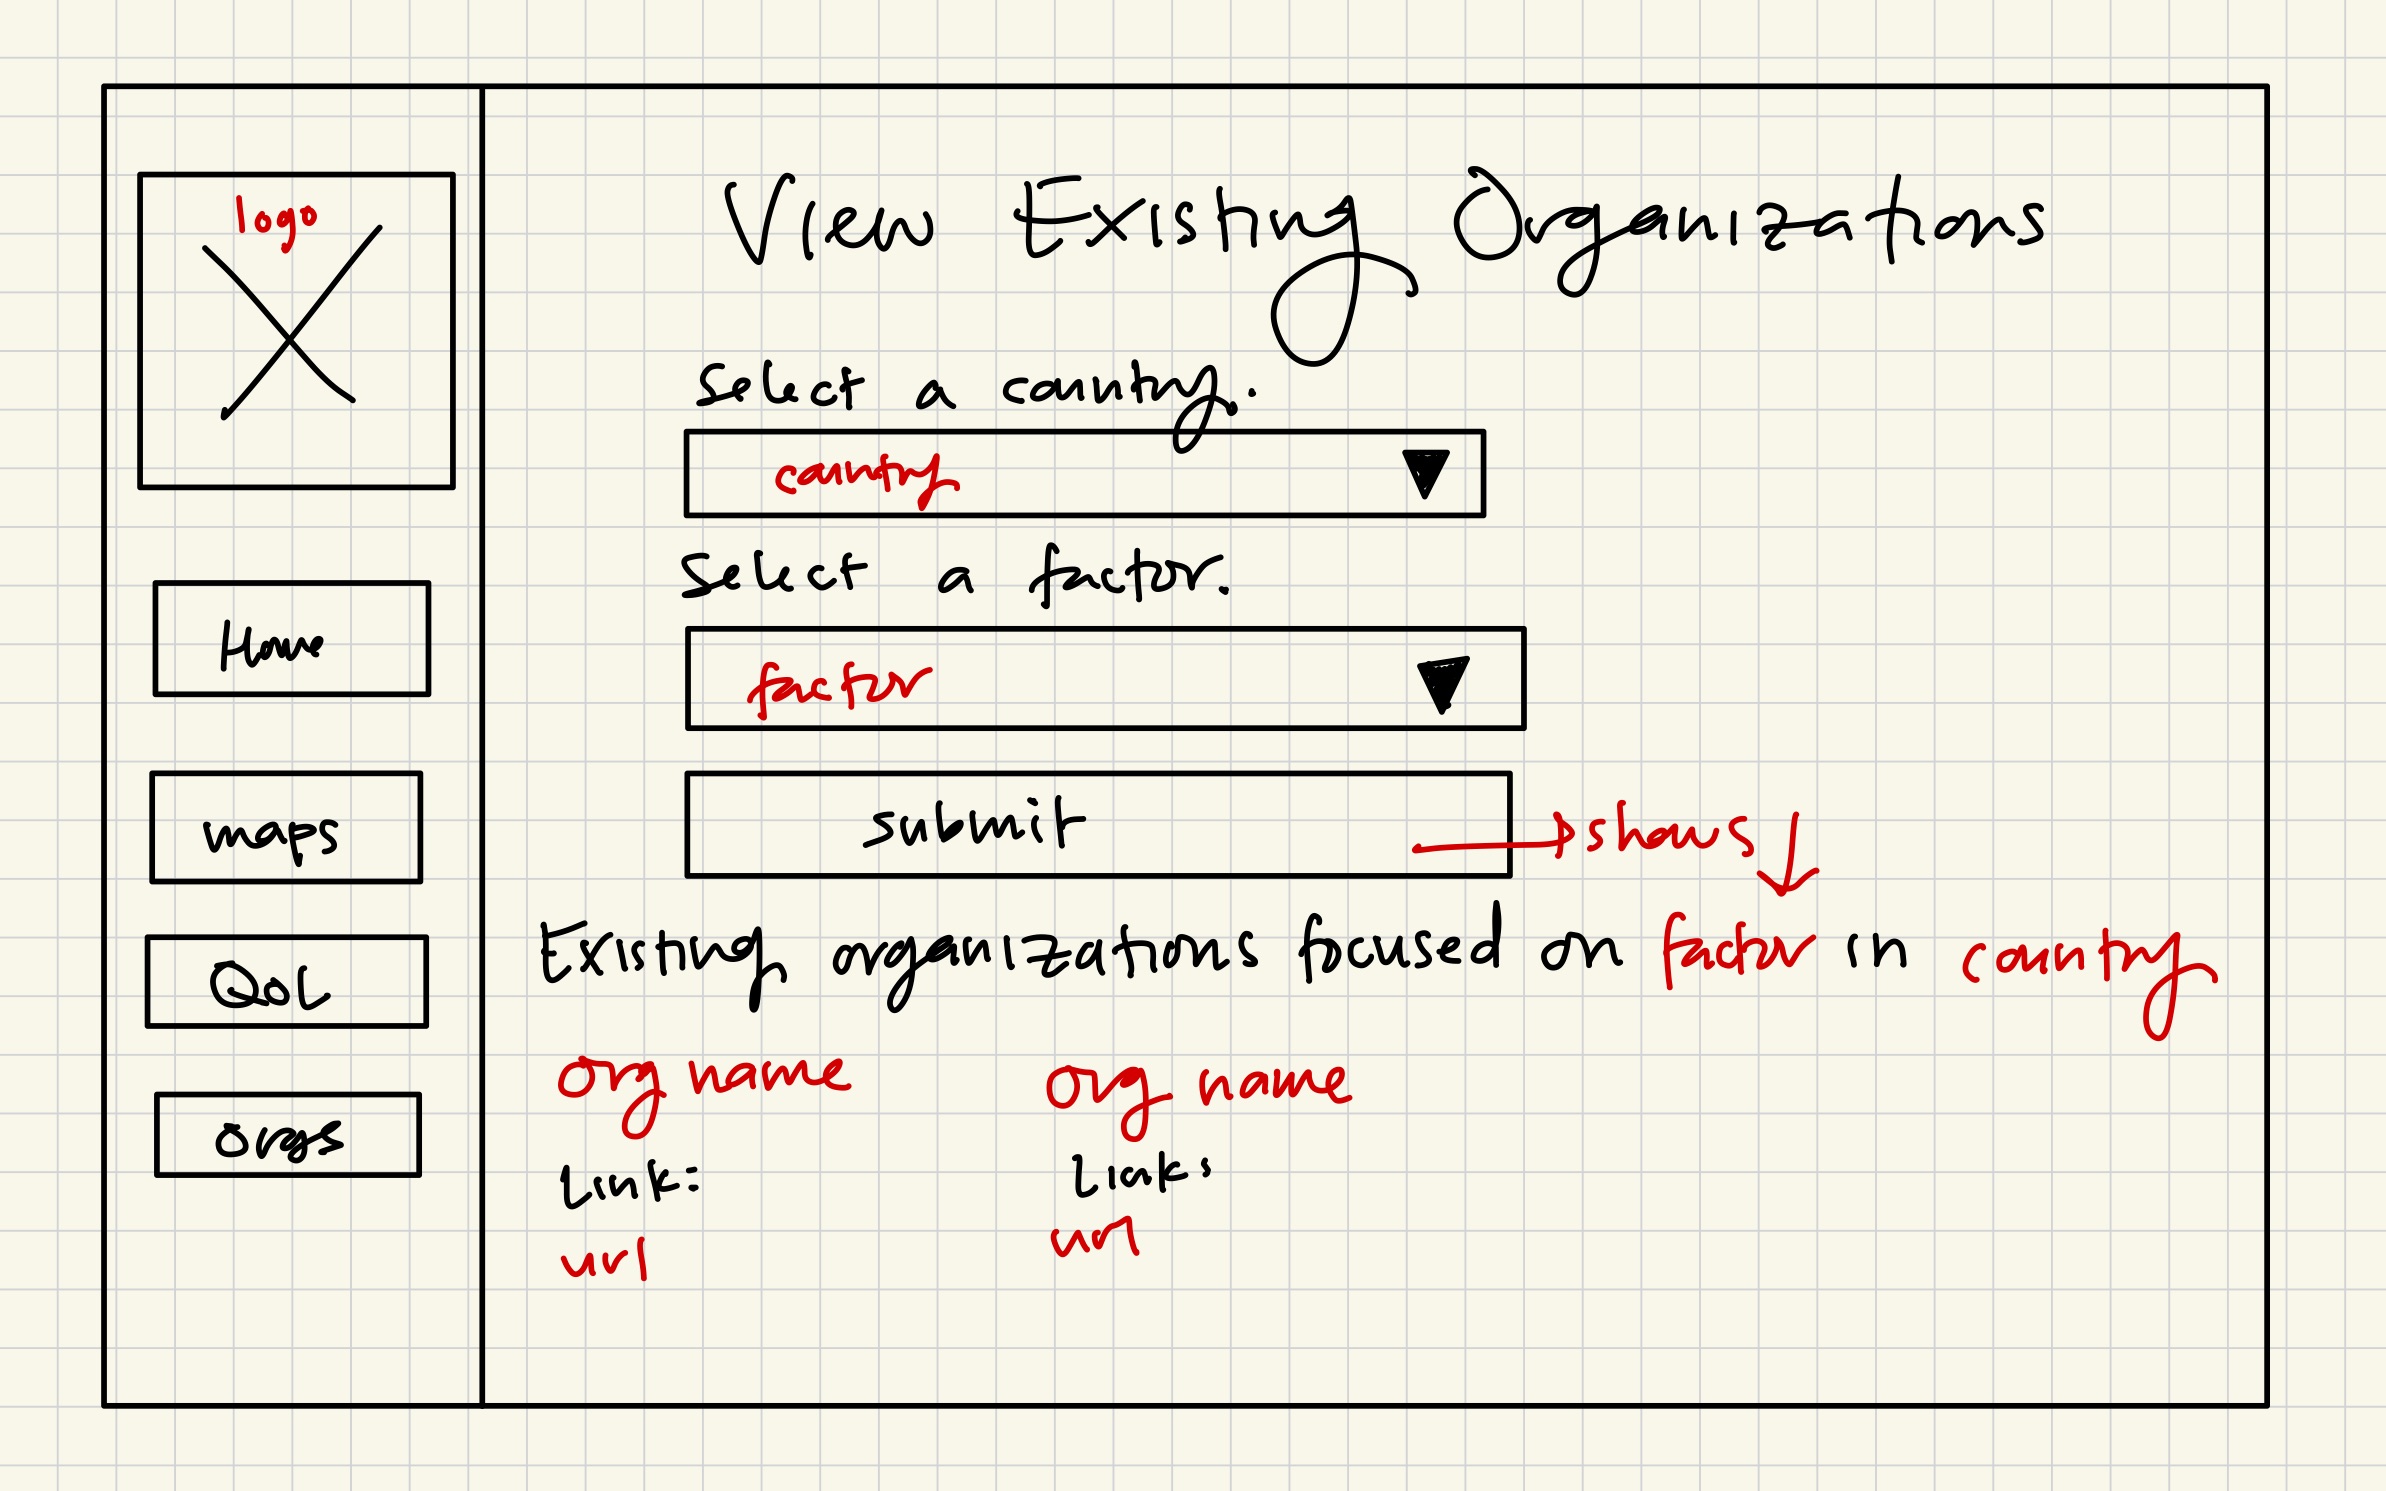 logo
Home
maps
QoL
orgs
View Existing Organizations
Select a country.
country
Select a factor.
factor
submit
shows
Existing organizations focused on factor in country
org name
Link:
url
org name
Link:
url